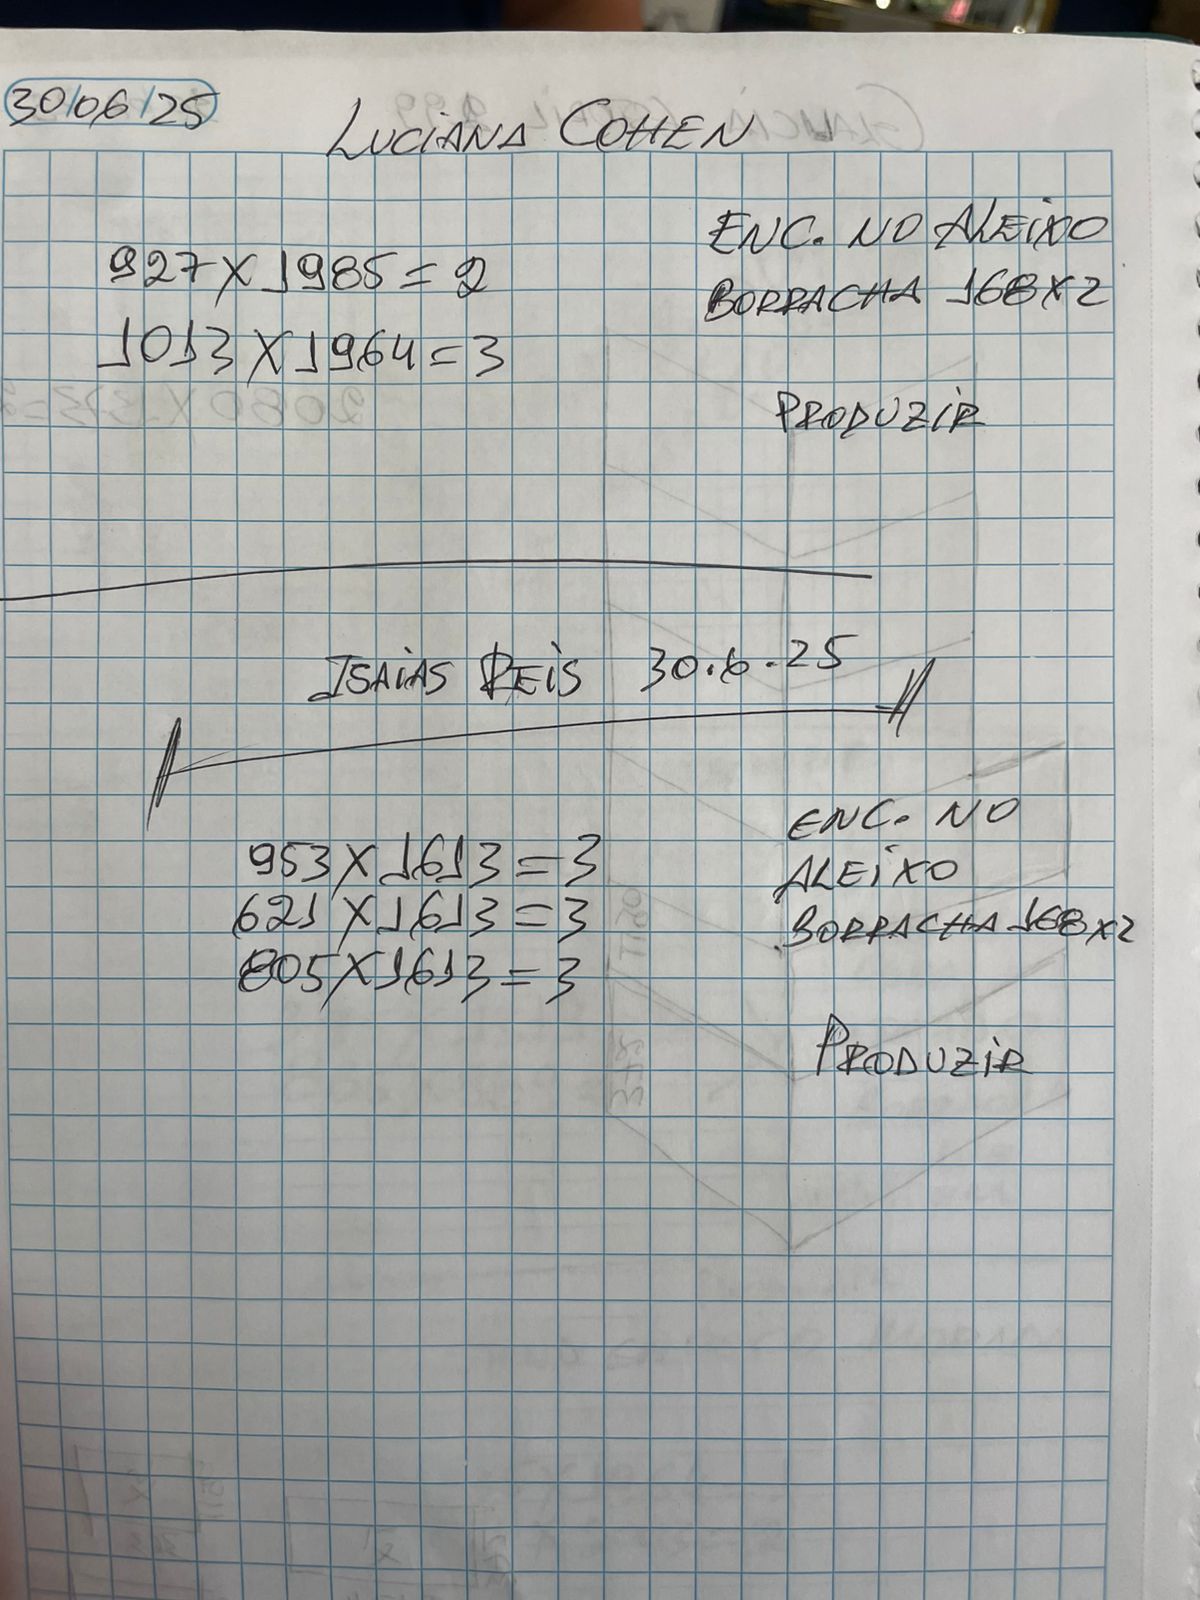 30/06/25
LUCIANA COHEN
ENC. NO ALEIXO
927 X 1985 = 2
BORRACHA 168 X 2
1013 X 1964 = 3
PRODUZIR
ISAIAS REIS 30.6.25
ENC. NO
953 X 1613 = 3
ALEIXO
621 X 1613 = 3
BORRACHA 168 X 2
805 X 1613 = 3
PRODUZIR